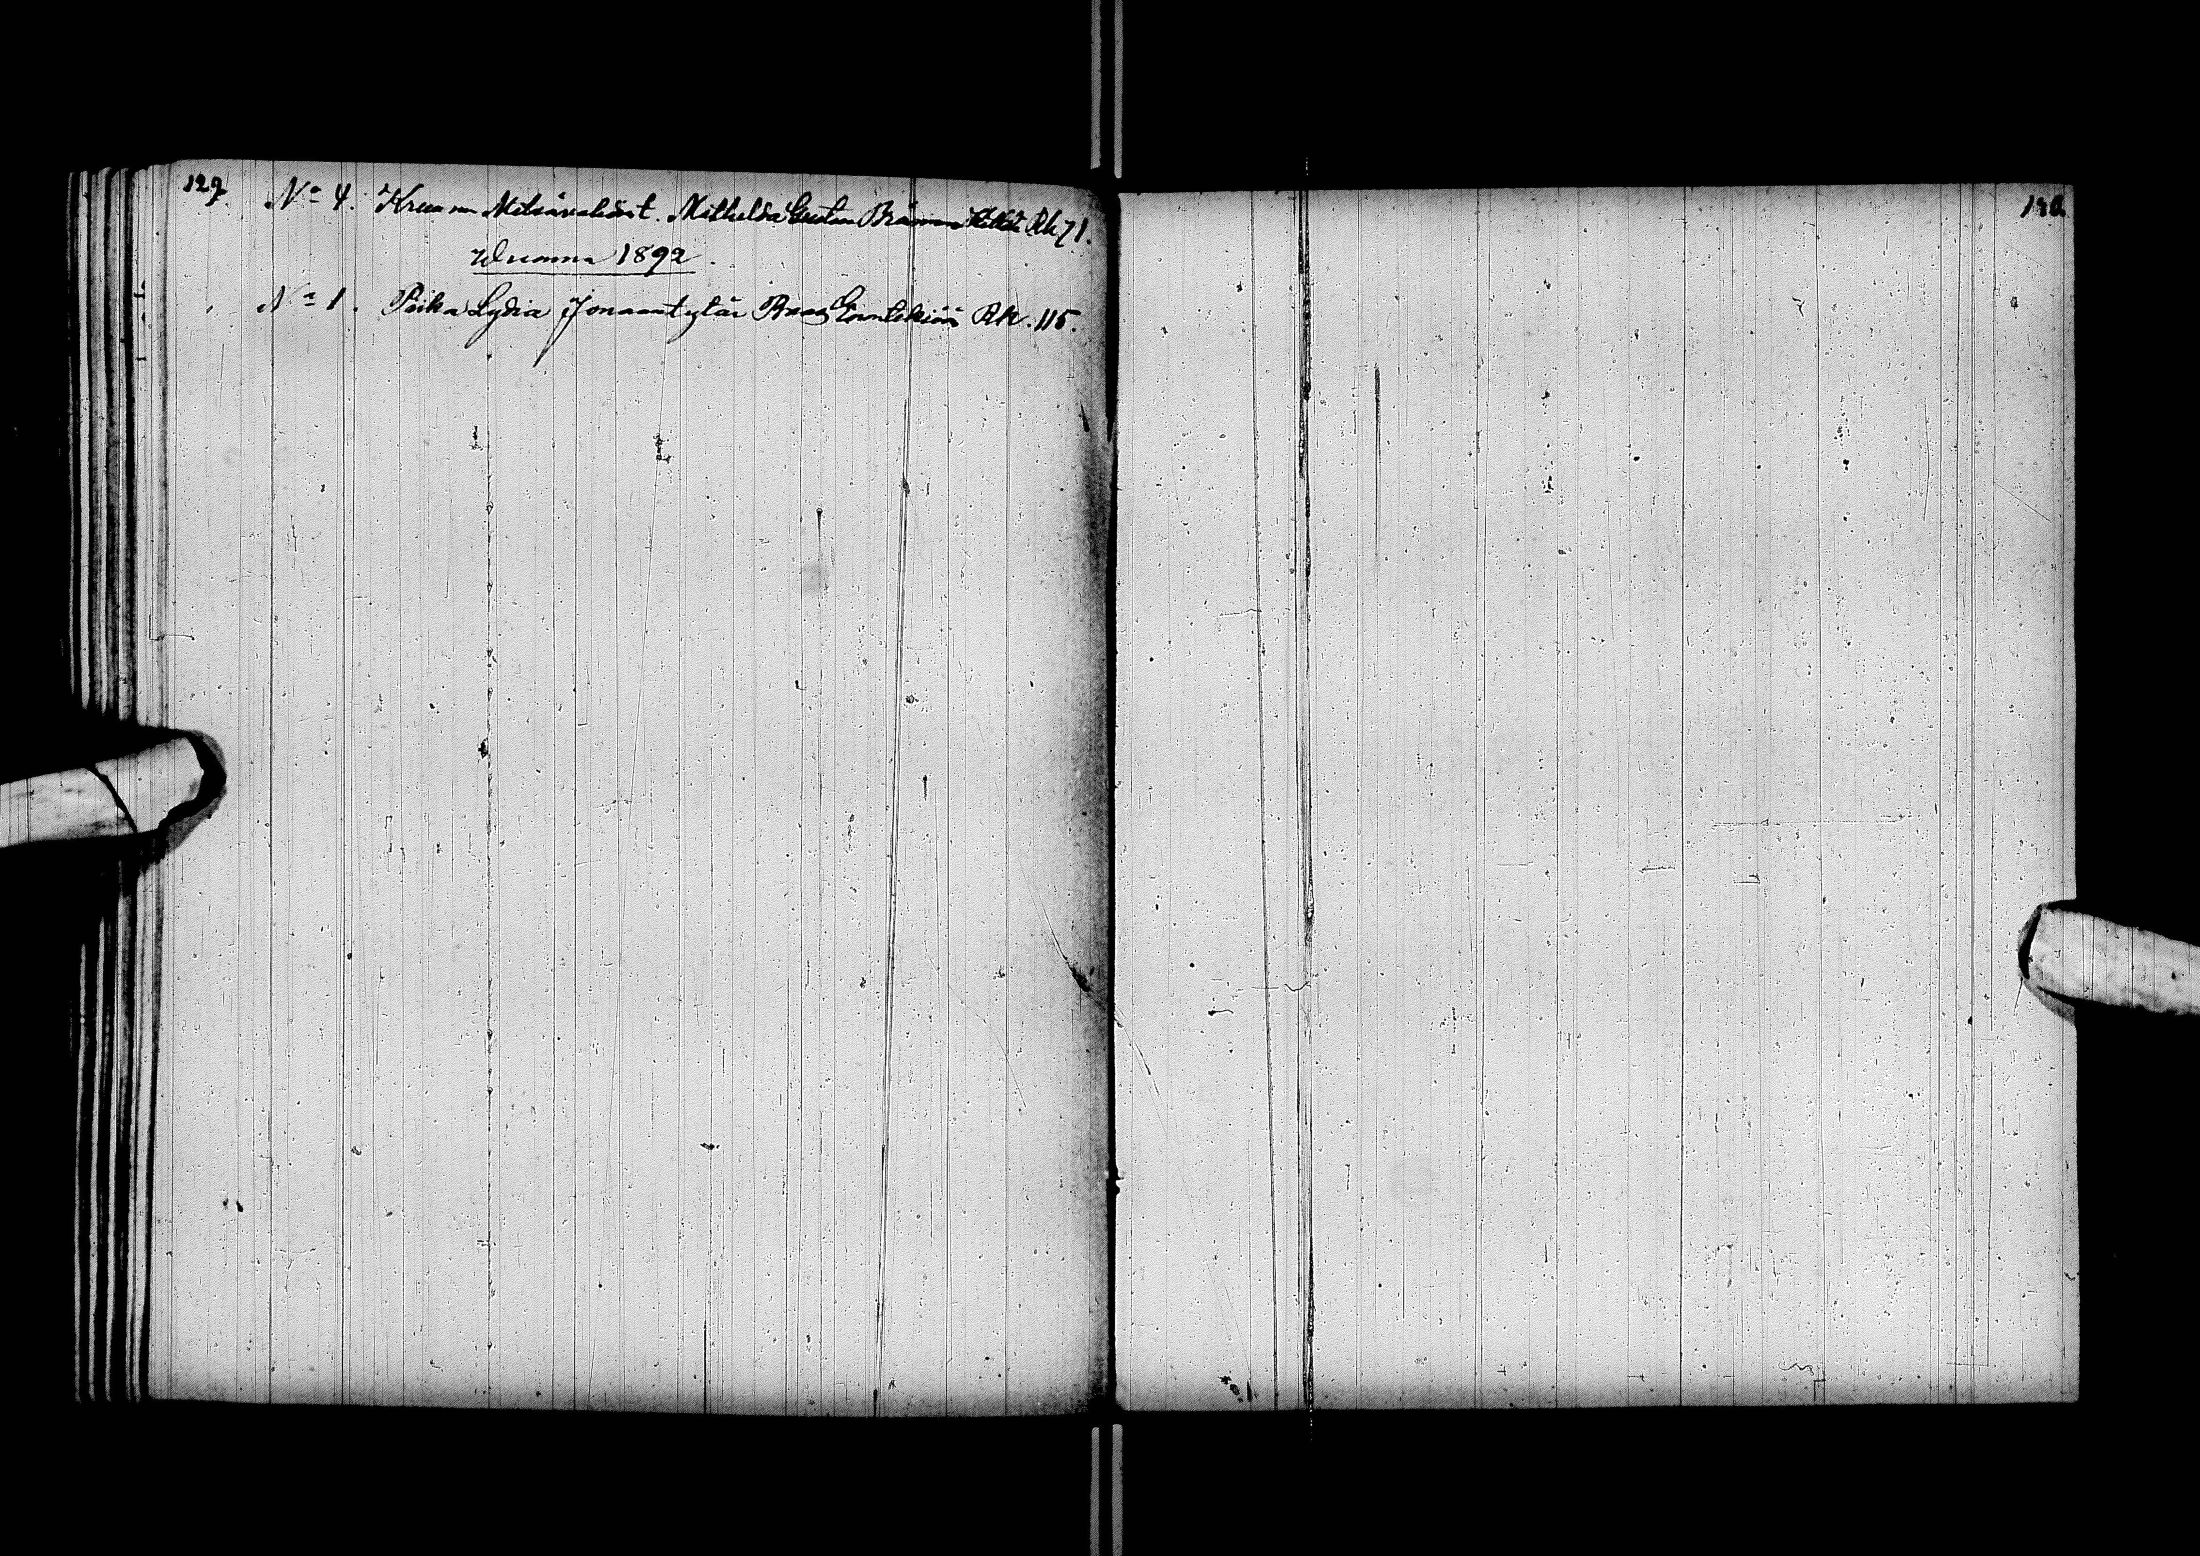 129.
No 4. Kruunun Metsänvahdint. Mathilda Gustava Bränn Rk 71.
Wuonna 1892.
No 1. Piika Lydia Joonaantytär Rk. 115.
130